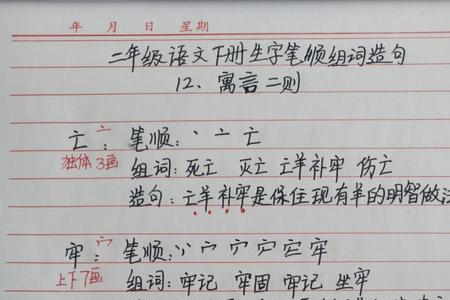 年 月 日 星期
二年级语文下册生字笔顺组词造句
12、寓言二则
亡：亠 笔顺：丶 亠 亡
独体3画 组词：死亡 灭亡 亡羊补牢 伤亡
造句：亡羊补牢是保住现有羊的明智做法
牢：宀 笔顺：丶 丷 宀 宀 牢
上下7画 组词：牢记 牢固 牢记 坐牢